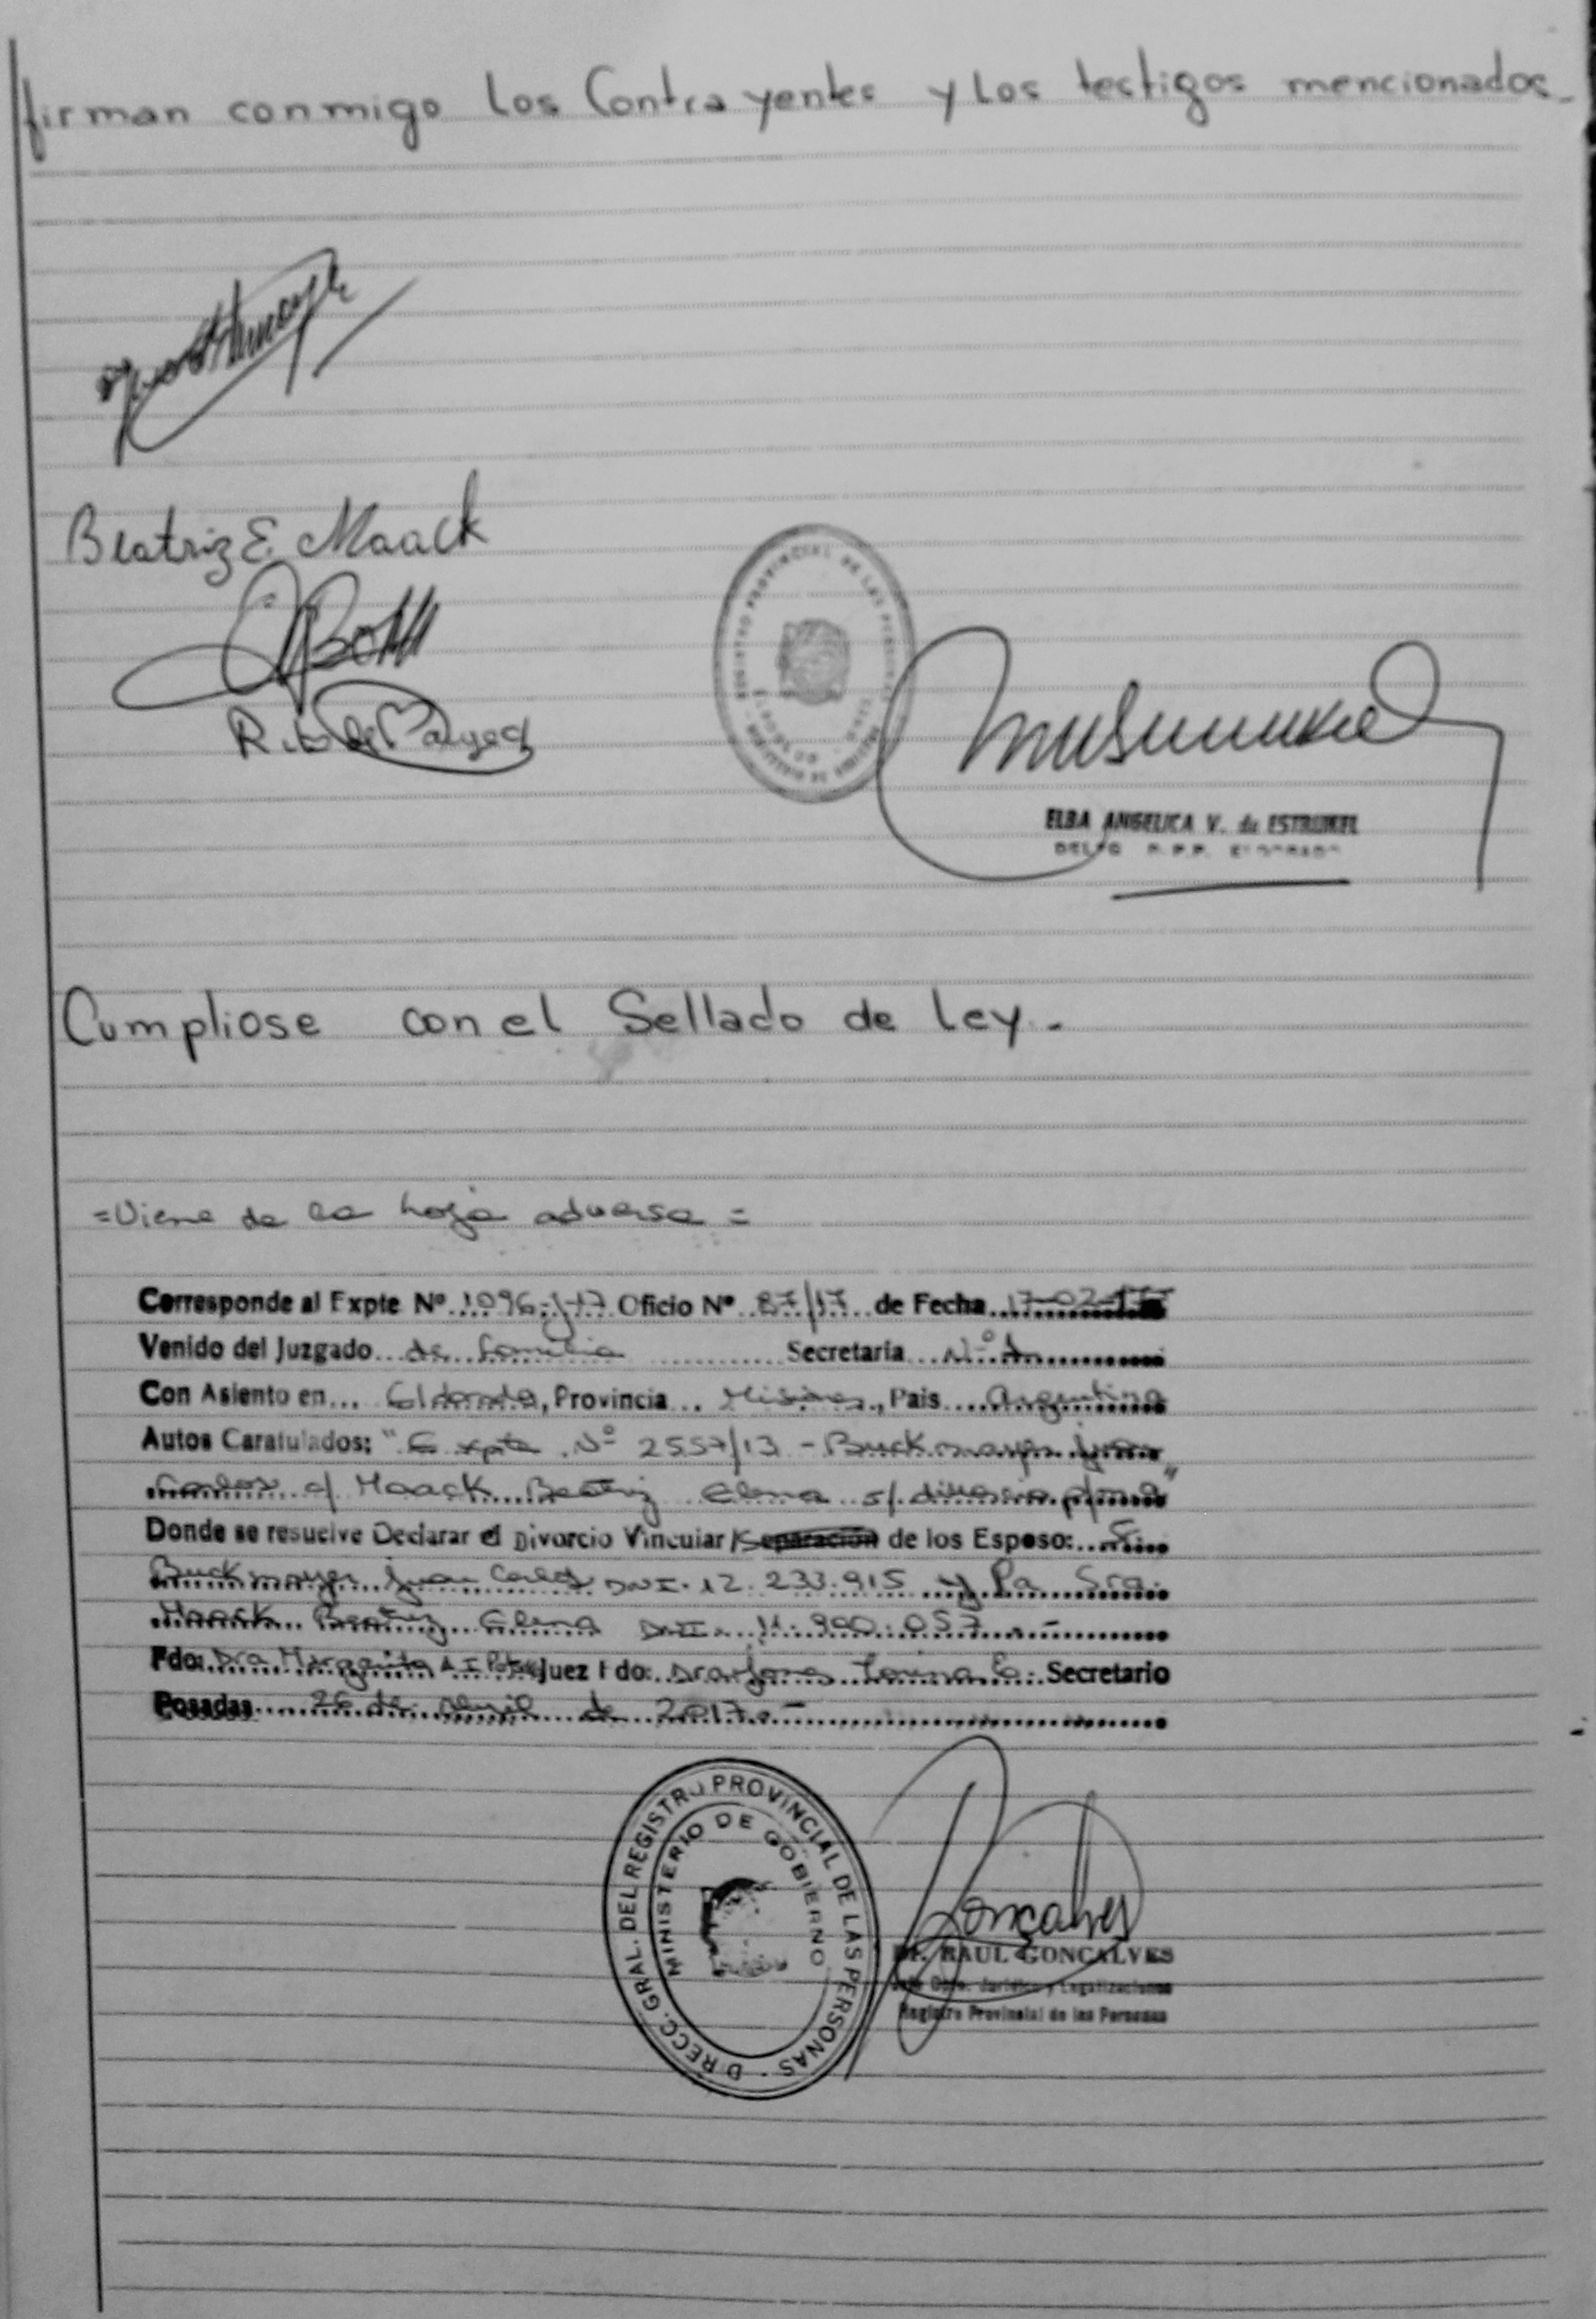 firman conmigo los Contrayentes y los testigos mencionados-
Beatriz E. Maack
REGISTRO PROVINCIAL DE LAS PERSONAS
ELBA ANGELICA V. de ESTRUKEL
DELEG R.P.P. ELDORADO
Cumpliose con el Sellado de Ley.-
=Viene de la hoja adversa=
Corresponde al Expte Nº 1096-J-17 Oficio Nº 87/17 de Fecha 17-02-17
Venido del Juzgado de Familia Secretaria Nº
Con Asiento en... Eldorado, Provincia... Misiones, Pais Argentina
Autos Caratulados: "Expte Nº 2557/13 - Buckmayer Juan
Carlos c/ Maack Beatriz Elena s/ divorcio"
Donde se resuelve Declarar el Divorcio Vincular/Separación de los Esposo: Sr.
Buckmayer Juan Carlos DNI. 12.233.915 y la Sra.
Maack Beatriz Elena DNI. 11.990.057.-
Fdo: Dra Margarita Juez Fdo: Dra Secretario
Posadas 26 de Abril de 2017.-
DIRECC. GRAL. DEL REGISTRO PROVINCIAL DE LAS PERSONAS
MINISTERIO DE GOBIERNO
Gonçalves
Dr. RAUL GONCALVES
Jefe Dpto. Jurídico y Legalizaciones
Registro Provincial de las Personas